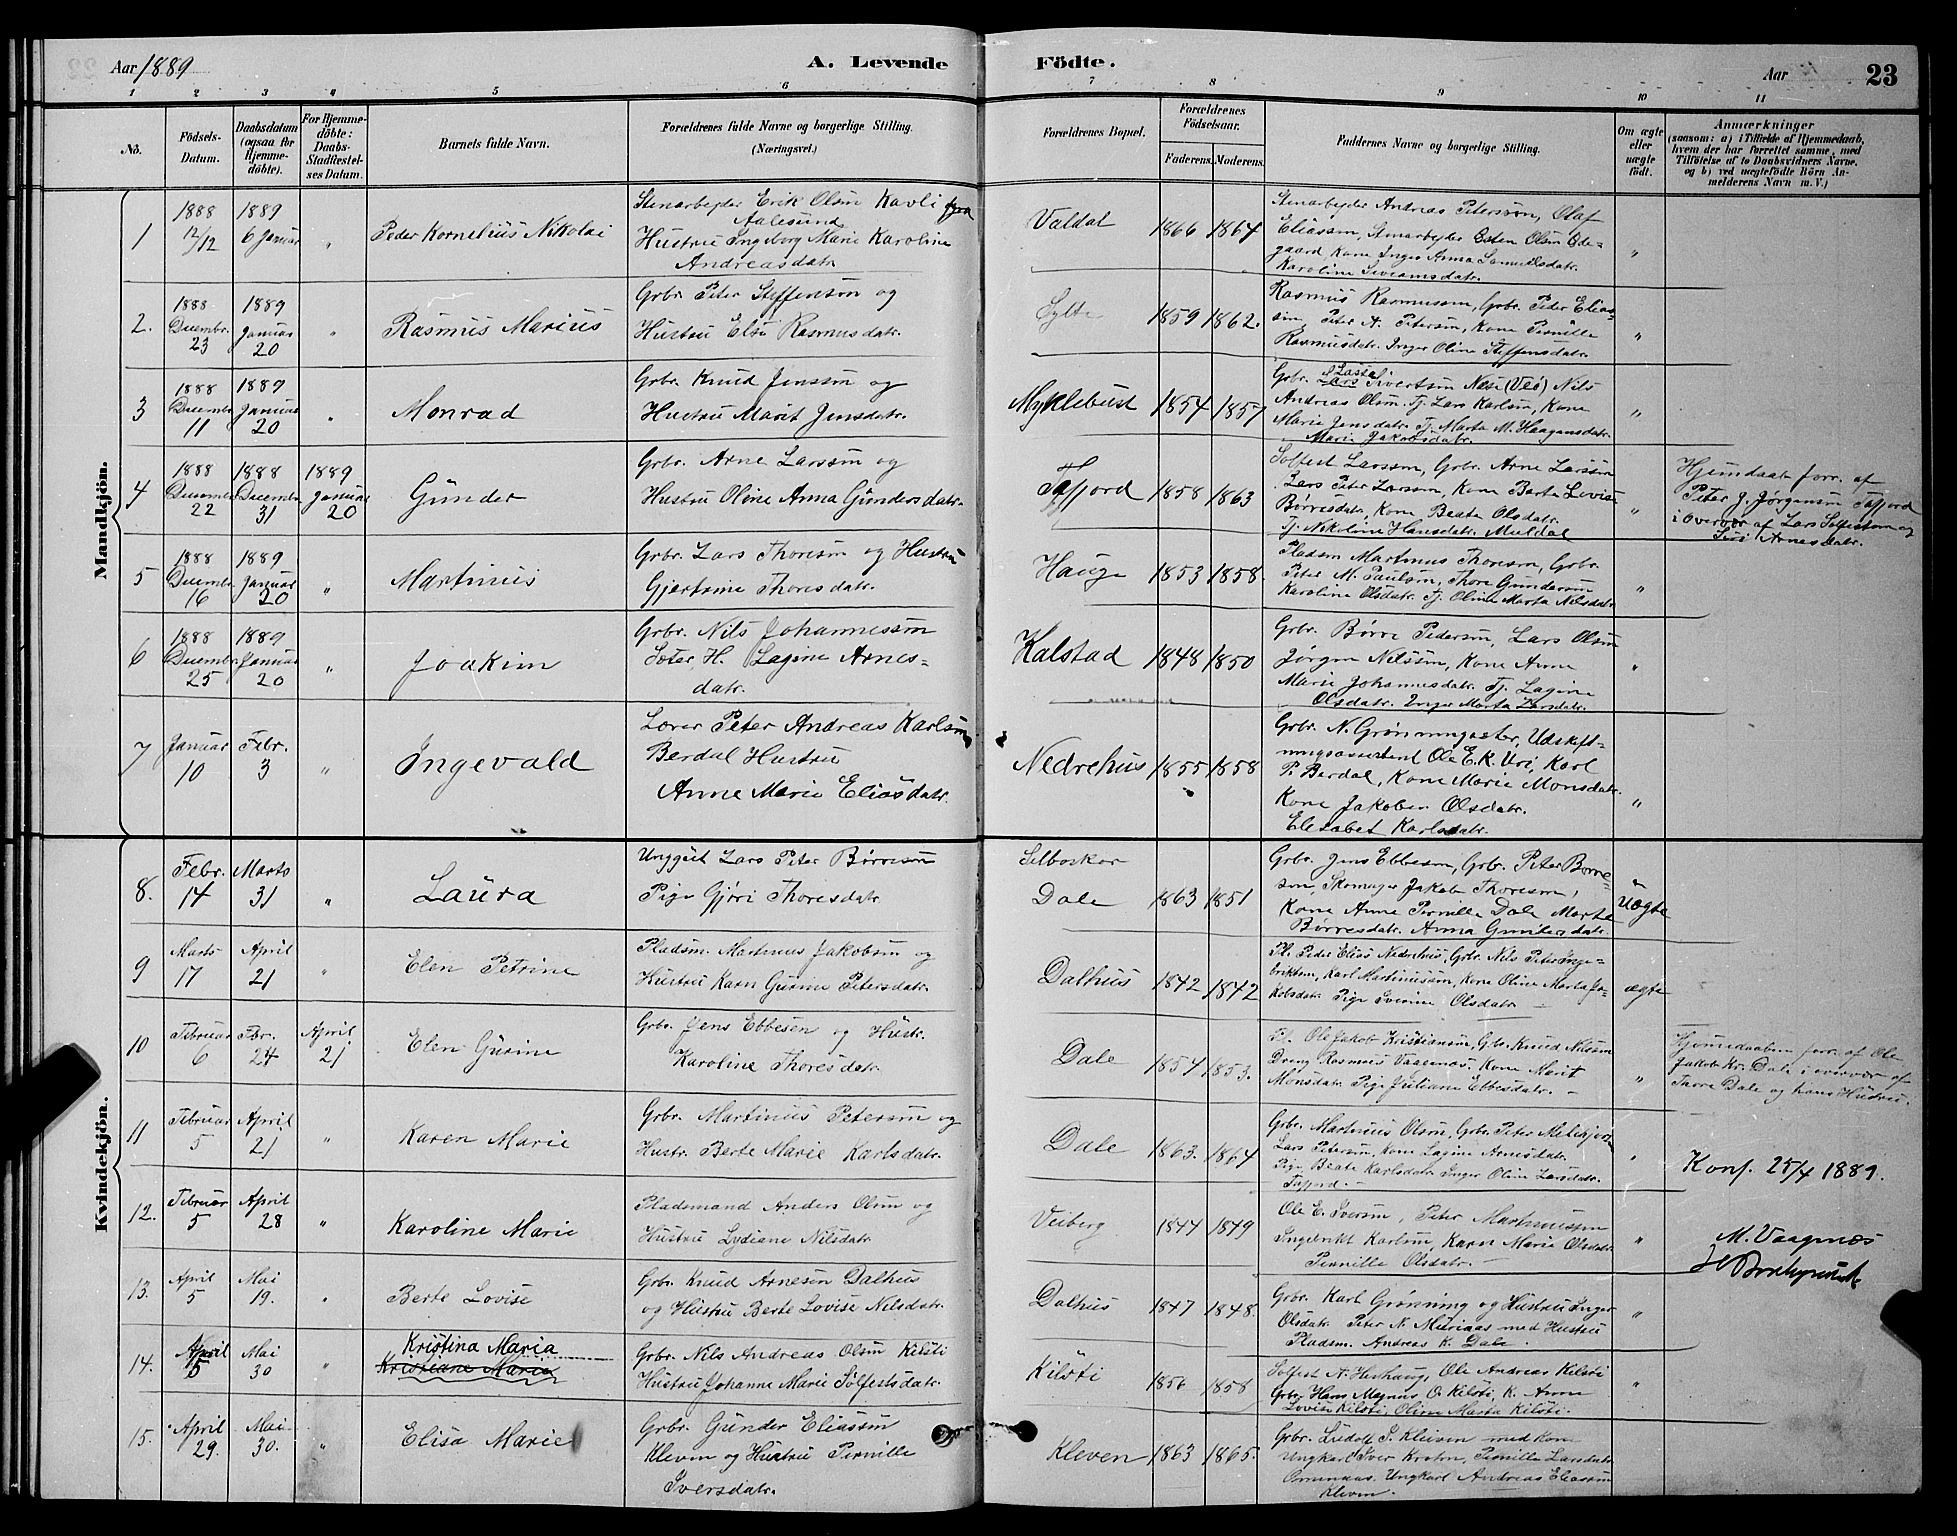 Aar 1889
A. Levende Födte.
Aar
23
1 2 3 4 5 6 7 8 9 10 11
No.
Födsels-Datum.
Daabsdatum (ogsaa for Hjemme-döbte).
For Hjemme-döbte: Daabs-Stadfæstel-ses Datum.
Barnets fulde Navn.
Forældrenes fulde Navne og borgerlige Stilling.
(Næringsvei.)
Forældrenes Bopæl.
Forældrenes Födselsaar.
Faderens. Moderens.
Faddernes Navne og borgerlige Stilling.
Om ægte eller uægte födt.
Anmærkninger
(saasom: a) i Tilfælde af Hjemmedaab,
hvem der har forrettet samme, med
Tilföielse af to Daabsvidners Navne.
og b) ved uægtefödte Börn An-
melderens Navn m. V.)
Mandkjön.
1
1888 12/12
1889 6 Januar
"
Peder Kornelius Nikolai
Stenarbejder Erik Olsen Kavli
Aalesund
Hustru Ingeborg Marie Karoline
Andreasdatr.
Valdal
1866 1864
Stenarbejder Andreas Peterssøn, Olaf
Eliassøn, Stenarbejder Esten Olsøn Øde-
gaard, Kone Inger Anna Samuelsdatr.
Karoline
"
2.
1888 Decembr. 23
1889 Januar 20
"
Rasmus Marius
Grbr. Peter Steffensøn og
Hustru Else Rasmusdatr.
Sylte
1859 1862.
Rasmus Rasmussøn, Grbr. Peder Elias-
søn, Peter A. Petersøn, Kone Pernille
Rasmusdatr. Inger Oline Steffensdatr.
"
3
1888 Decembr 11
1889 Januar 20
"
Monrad
Grbr. Knud Jenssøn og
Hustru Marit Jensdatr.
Myklebust
1854 1857
Grbr. Lasse Sivertsøn Næse (Veø) Nils
Andreas Olsøn. Tj. Lars Karlsøn, Kone
Marie Jensdatr. Tj. Marta M. Haagensdatr.
Marie Jakobsdatr.
"
4
1888 Decembr 22
1888 Decembr 31
1889 Januar 20
Günder
Grbr. Arne Larssøn og
Hustru Oline Anna Gundersdatr.
Tafjord
1858 1863
Solfest Larssøn, Grbr. Arne Larssøn
Lars Peter Larssøn, Kone Berta Lovise
Børresdatr, Kone Beate Olsdatr.
Tj. Nikoline Hansdatr. Muldal
"
Hjemdaab forr. af
Peter J. Jørgensen Tafjord
i Overvær af Lars Solfestsøn og
Arnesdatr.
5
1888 Decembr 16
1889 Januar 20
"
Martinus
Grbr. Lars Thoresøn og Hustru
Gjertine Thoresdatr.
Hauge
1853 1858.
Pladsm Martinus Thoresøn, Grbr.
Peter M. Paulsøn, Thore Gundersøn
Karoline Olsdatr. Tj. Oline Marta Nilsdatr
"
6
1888 Decembr. 25
1889 Januar 20
"
Joakim
Grbr. Nils Johannessøn
H. Lagine Arnes-
datr.
Kalstad
1848 1850
Grbr. Børre Pedersøn, Lars Olsøn
Jørgen Nilssøn, Kone Anne
Marie Johannesdatr. Tj. Lagine
Olsdatr. Inger Marta Larsdatr.
"
7
Januar 10
Febr. 3
"
Ingevald
Lærer Peter Andreas Karlsøn
Berdal Hustru
Anne Marie Eliasdatr.
Nedrehus
1855 1858
Grbr. N. Grønningsæter, Udskift-
ningsassistent Ole E. K. Uri, Karl
P. Berdal, Kone Marie Monsdatr.
Kone Jakobine Olsdatr.
Elisabet Karlsdatr.
"
Kvindekjön.
8.
Febr. 14
Marts 31
"
Laura
Unggut Lars Peter Børresøn
Pige Gjøri Thoresdatr.
Selboskar
Dale
1863 1851
Grbr. Jens Ebbesøn, Grbr. Peter Børre-
søn, Skomager Jakob Thoresøn,
Kone Anne Pernille Dale Marta
Børresdatr. Anna Gundersdatr.
Uægte
9
Marts 17
April 21
"
Elen Petrine
Pladsm. Martinus Jakobsøn og
Hustru Karn Gurine Petersdatr.
Dalhus
1842 1842
Pl. Peter Elias Nedrehus, Grbr. Nils Peter Inge-
briktsøn, Karl Martinussøn, Kone Oline Marta Ja-
kobsdatr. Pige Olsdatr.
ægte
10
Februar 6
Febr. 24
April 21
Elen Gurine
Grbr. Jens Ebbesen og Hustr.
Karoline Thoresdatr.
Dale
1854 1853.
Pl. Ole Jakob Kristiansøn, Gbr. Knud Nilssøn
Dreng Rasmus Vaagenæs, Kone Marit
Monsdatr. Pige Juliane Ebbesdatr. -
"
Hjemmedaaben forr. af Ole
Jakob Kr. Dale i overvær af
Tore Dale og hans Hustru.
11
Februar 5
April 21
"
Karen Marie
Grbr. Martinus Petersøn og
Hustr. Berte Marie Karlsdatr.
Dale
1863. 1864
Grbr. Martinus Olsøn, Grbr. Peter
Lars Petersøn, Kone Lagine Arnesdatr.
Pige Beate Karlsdatr Inger Oline Larsdatr.
Tafjord. -
"
Konf. 25/4 1889.
12.
Februar 5
April 28
"
Karoline Marie
Pladsmand Anders Olsøn og
Hustru Lydiane Nilsdatr.
Veiberg
1844 1849
Ole E. Iversøn, Peter Martinussøn
Ingebrikt Karlsøn, Karen Marie Olsdatr.
Pernille Olsdatr. -
"
M. Vaagenæs
13.
April 5
Mai 19.
"
Berte Lovise
Grbr. Knud Arnesen Dalhus
og Hustru Berte Lovise Nilsdatr.
Dalhus
1847 1848.
Grbr. Karl Grønning og Hustru Inger
Olsdatr. Peter N. Muriaas med Hustru
Pladsm. Andreas K. Dale.
"
14.
April 5
Mai 30
"
Kristina Maria
Kristiane Marie
Grbr. Nils Andreas Olsøn Kilsti
Hustru Johanne Marie Solfestsdatr.
Kilsti
1856 1858
Solfest N. Ole Andreas Kilsti
Grbr. Hans Magnus O. Kilsti, K. Anne
Lovise Kilsti, Oline Marta Kilsti.
"
15.
April 29.
Mai 30.
"
Elisa Marie
Grbr. Gunder Eliassøn
Kleven og Hustru Pernille
Iversdatr.
Kleven
1863 1865.
Grbr. Ludolf S. Kleiven med kone
Ungkarl Iver Krohn, Pernille Larsdatr
Ungkarl Andreas Eliassøn
Kleven.